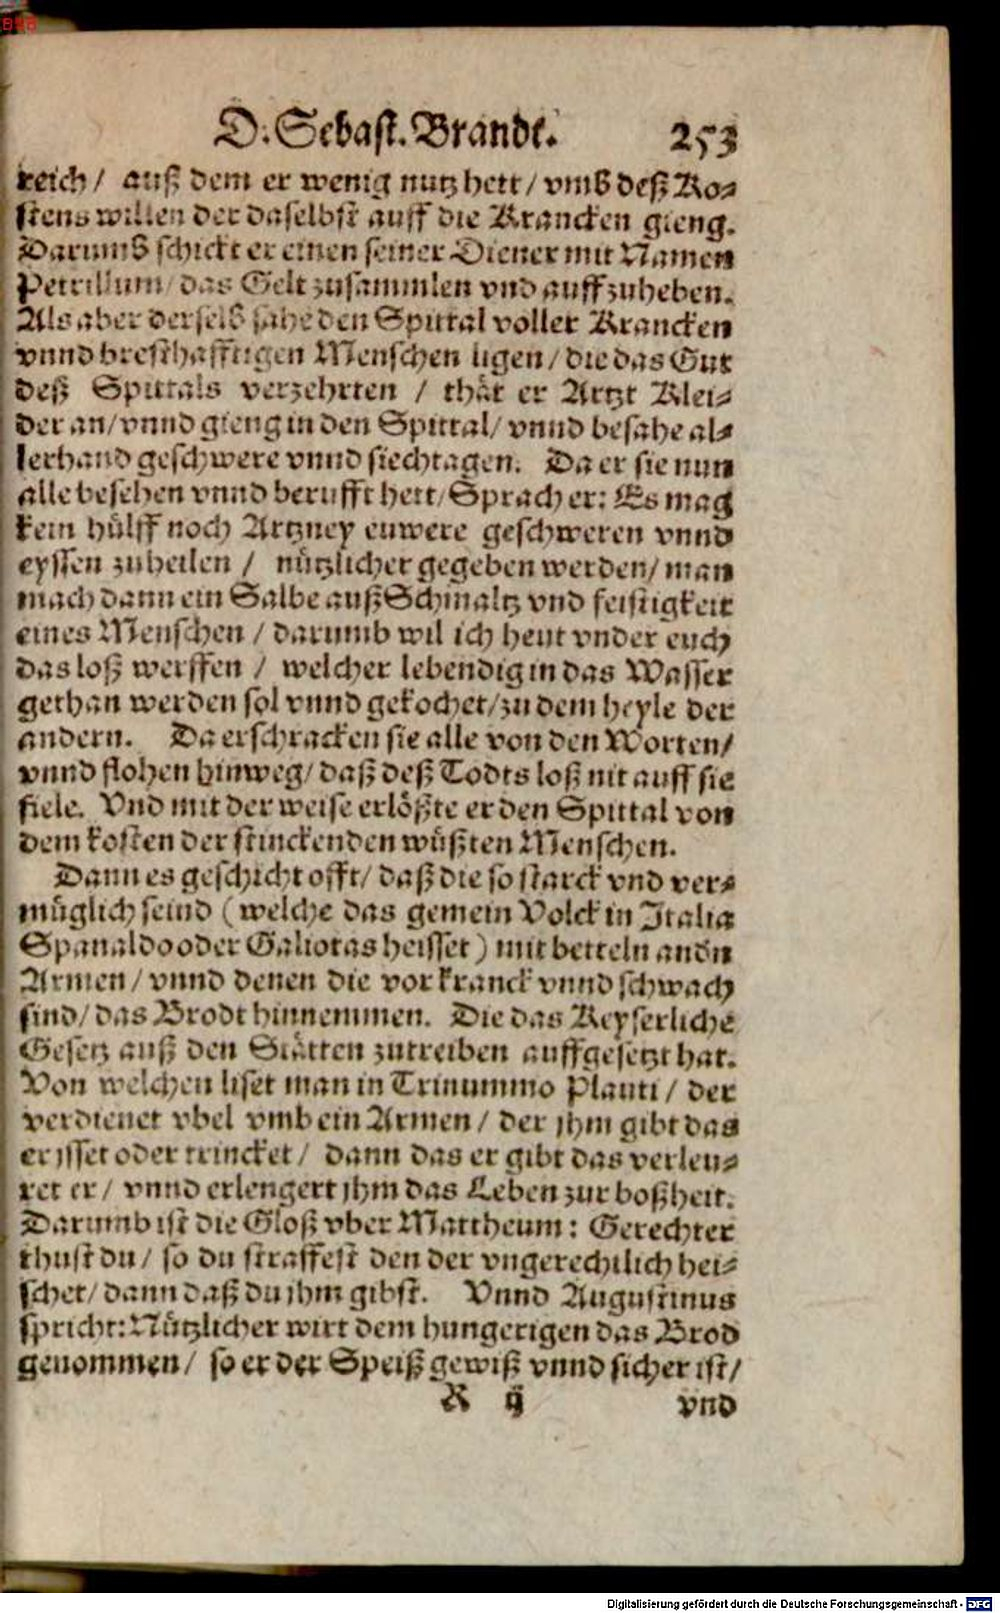 D. Sebast. Brandt. 253
reich / auß dem er wenig nutz hett / vmb deß Ko-
stens willen der daselbst auff die Krancken gieng.
Darumb schickt er einen seiner Diener mit Namen
Petrillum / das Gelt zusammlen vnd auffzuheben.
Als aber derselb sahe den Spittal voller Krancken
vnnd bresthafftigen Menschen ligen / die das Gut
deß Spittals verzehrten / thät er Artzt Klei-
der an / vnnd gieng in den Spittal / vnnd besahe al-
lerhand geschwere vnnd siechtagen. Da er sie nun
alle besehen vnnd berufft hett / Sprach er: Es mag
kein hülff noch Artzney euwere geschweren vnnd
eyssen zuheilen / nützlicher gegeben werden / man
mach dann ein Salbe auß Schmaltz vnd feistigkeit
eines Menschen / darumb wil ich heut vnder euch
das loß werffen / welcher lebendig in das Wasser
gethan werden sol vnnd gekochet / zu dem heyle der
andern. Da erschracken sie alle von den Worten /
vnnd flohen hinweg / daß deß Todts loß nit auff sie
fiele. Vnd mit der weise erlößte er den Spittal von
dem kosten der stinckenden wüßten Menschen.
Dann es geschicht offt / daß die so starck vnd ver-
müglich seind (welche das gemein Volck in Italia
Spanaldo oder Galiotas heisset) mit betteln andn
Armen / vnnd denen die vor kranck vnnd schwach
sind / das Brodt hinnemmen. Die das Keyserliche
Gesetz auß den Stätten zutreiben auffgesetzt hat.
Von welchen liset man in Trinummo Plauti / der
verdienet vbel vmb ein Armen / der jhm gibt das
er isset oder trincket / dann das er gibt das verleu-
ret er / vnnd erlengert jhm das Leben zur boßheit.
Darumb ist die Gloß vber Mattheum: Gerechter
thust du / so du straffest den der vngerechtlich hei-
schet / dann daß du jhm gibst. Vnnd Augustinus
spricht: Nützlicher wirt dem hungerigen das Brod
genommen / so er der Speiß gewiß vnnd sicher ist /
K ij vnd
Digitalisierung gefördert durch die Deutsche Forschungsgemeinschaft - DFG